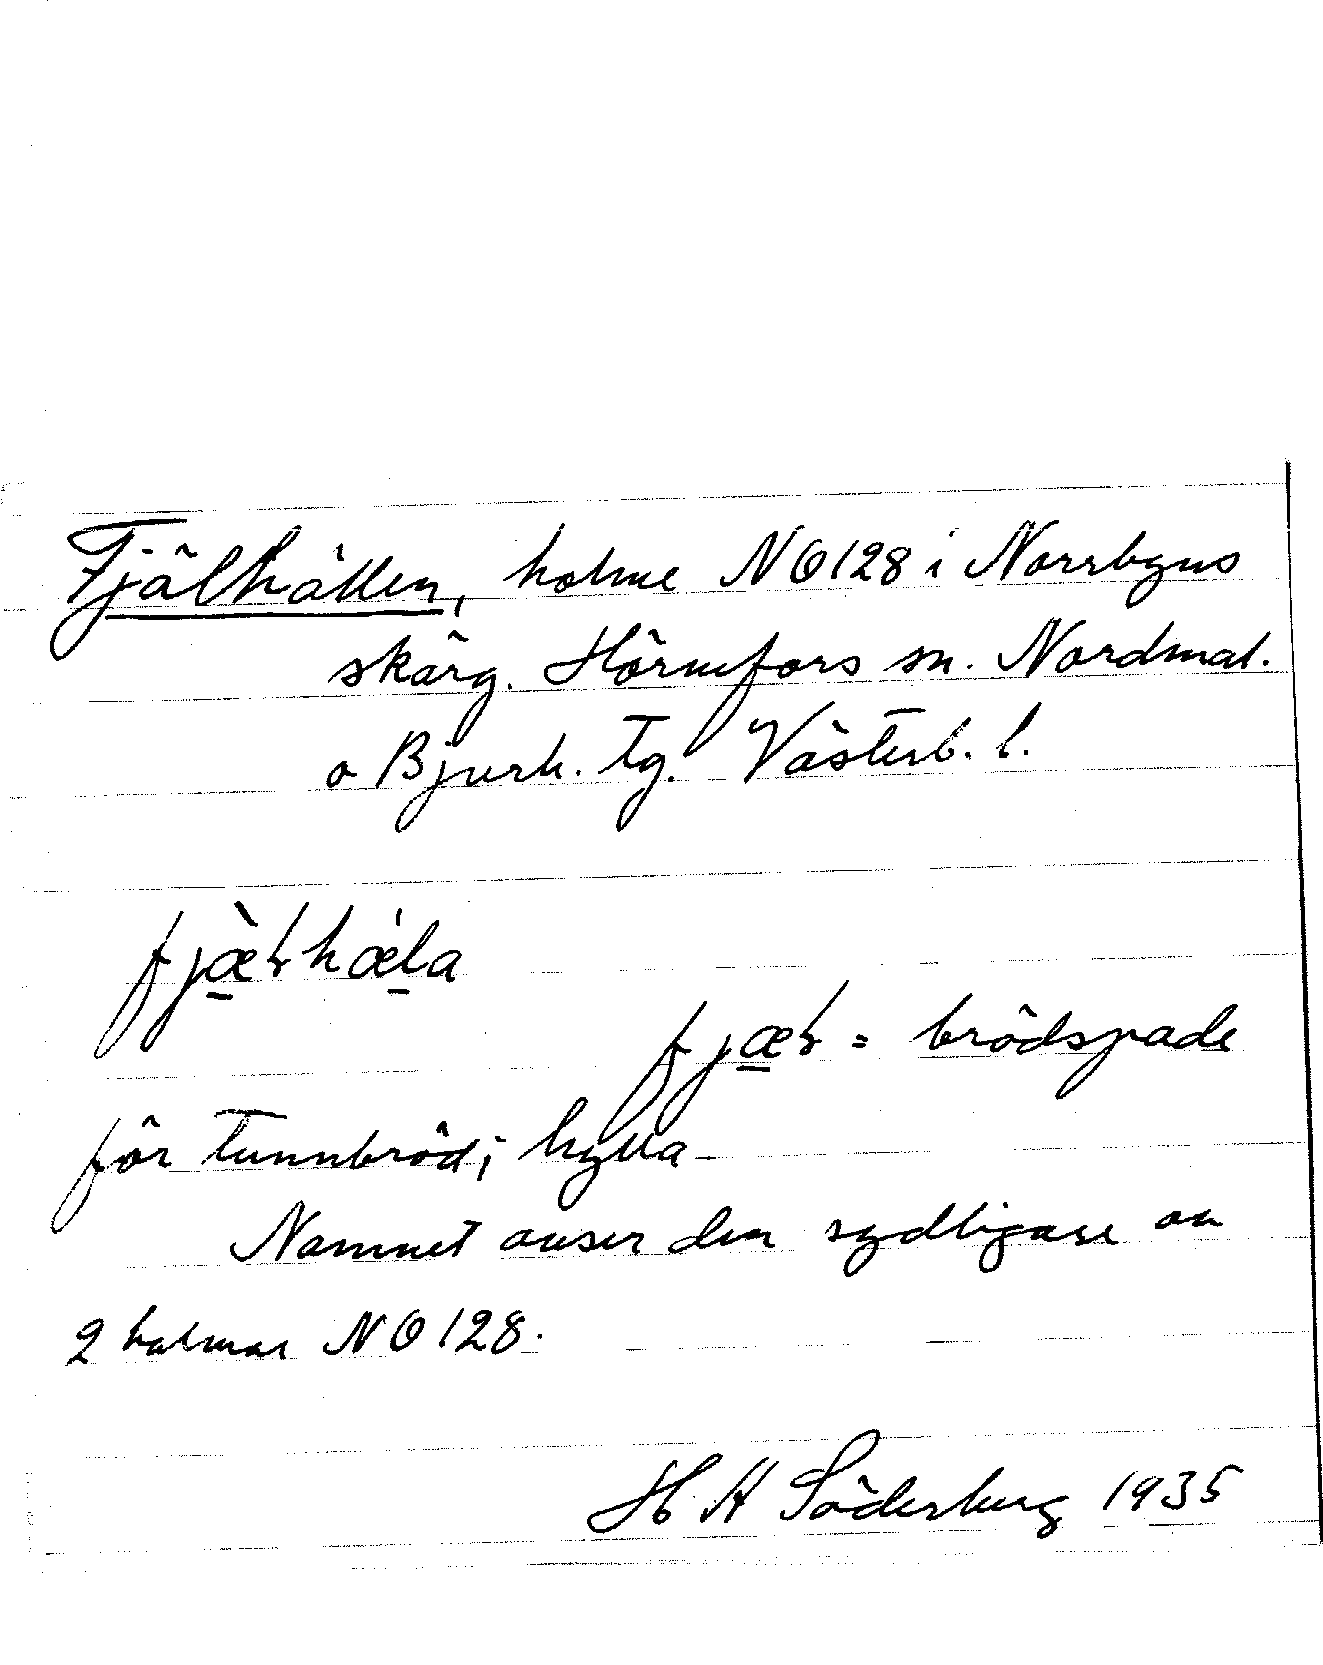 Fjälhällen, holme NO128 i Norrbyns
skärg. Hörnefors sn. Nordmal.
o Bjurh. tg. Västerb. l.
fjæ̠̀ɫhǽ̠la
fjæ̠ɫ = brödspade
för tunnbröd; hylla
Namnet avser den sydligare av
2 holmar NO128.
H A Söderberg 1935